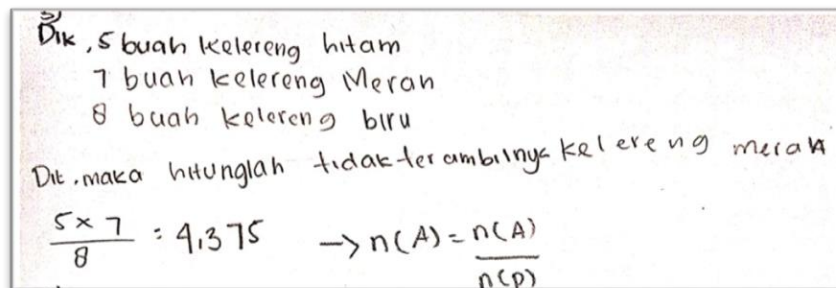 3)
Dik, 5 buah kelereng hitam
7 buah kelereng Merah
8 buah kelereng biru
Dit, maka hitunglah tidak terambilnya kelereng merah
5 × 7 / 8 = 4,375 → n(A) = n(A) / n(p)